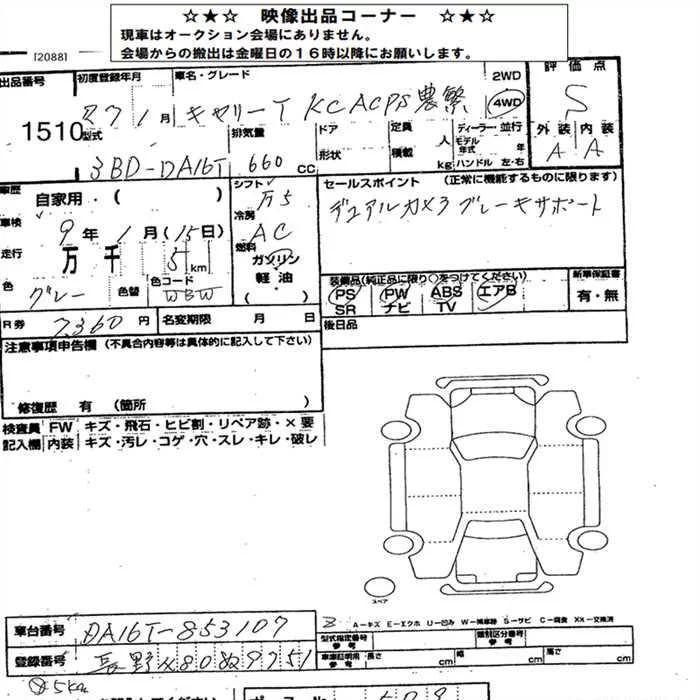 ☆★☆ 映像出品コーナー ☆★☆
現車はオークション会場にありません。
会場からの搬出は金曜日の16時以降にお願いします。
[2088]
出品番号 初度登録年月 車名・グレード 2WD 評価点
1510 27 1月 キャリーT KCACPS農繁 4WD S
型式 排気量 ドア 定員 ディーラー・並行 外装 内装
形状 積載 人 モデル年式 年 A A
3BD-DA16T 660 CC kg ハンドル 左・右
車歴 自家用・( ) シフト セールスポイント (正常に機能するものに限ります)
車検 9年 1月(15日) 冷房 AC デュアルカメラブレーキサポート
走行 万 千 5 km 燃料 ガソリン
軽油
( )
色 グレー 色替 色コード WBW
装備品(純正品に限り○をつけてください) 新車保証書
PS PW ABS エアB 有・無
SR ナビ TV
R券 7360円 名変期限 月 日 後日品
注意事項申告欄 (不具合内容等は具体的に記入して下さい)
修復歴 有 (箇所 )
検査員 FW キズ・飛石・ヒビ割・リペア跡・×要
記入欄 内装 キズ・汚レ・コゲ・穴・スレ・キレ・破レ
スペア
A−キズ E−エクボ U−凹み W−補修跡 S−サビ C−腐食 XX−交換済
車台番号 DA16T-853107
型式指定番号 参考 類別区分番号 参考
登録番号 長野
車庫証明用 参考 長さ cm 幅 cm 高さ cm